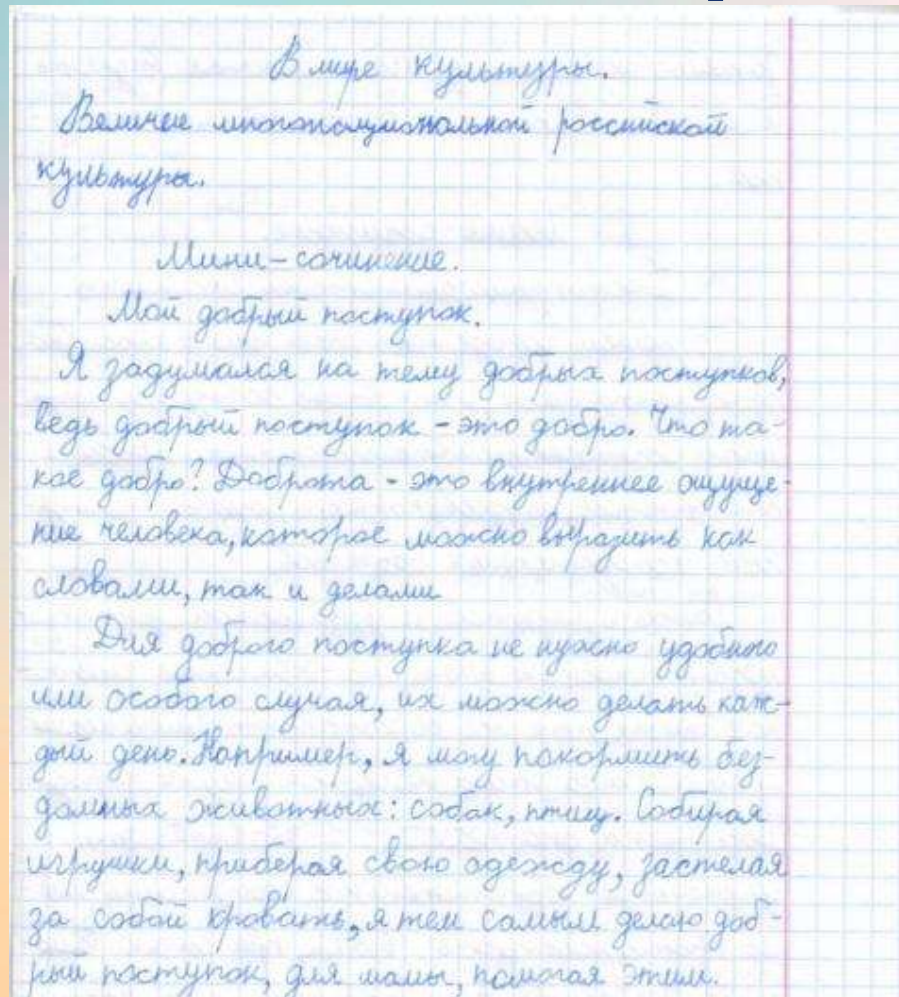 В мире культуры.
Величие многонациональной российской
культуры.
Мини-сочинение.
Мой добрый поступок.
Я задумался на тему добрых поступков,
ведь добрый поступок - это добро. Что та-
кое добро? Доброта - это внутреннее ощуще-
ние человека, которое можно выразить как
словами, так и делами
Для доброго поступка не нужно удобного
или особого случая, их можно делать каж-
дый день. Например, я могу покормить без-
домных животных: собак, птиц. Собирая
игрушки, приберая свою одежду, застелая
за собой кровать, я тем самым делаю доб-
рый поступок, для мамы, помогая этим.